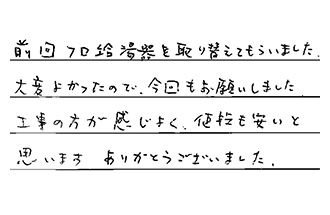 前回フロ給湯器を取り替えてもらいました.
大変よかったので、今回もお願いしました
工事の方が感じよく、値段も安いと
思います ありがとうございました.